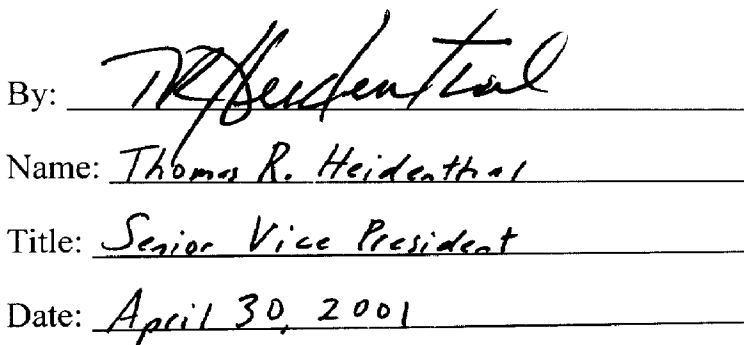 By: TRHeidenthal
Name: Thomas R. Heidenthal
Title: Senior Vice President
Date: April 30, 2001